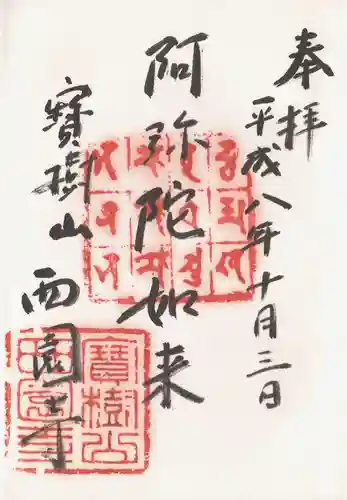 奉拝
平成八年十月三日
阿弥陀如来
寶樹山
西園寺
寶樹山
西園寺